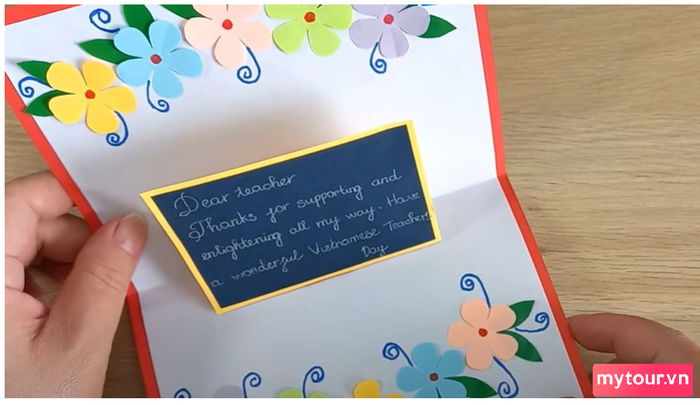 Dear teacher
Thanks for supporting and
enlightening all my way. Have
a wonderful Vietnamese Teachers
Day
mytour.vn